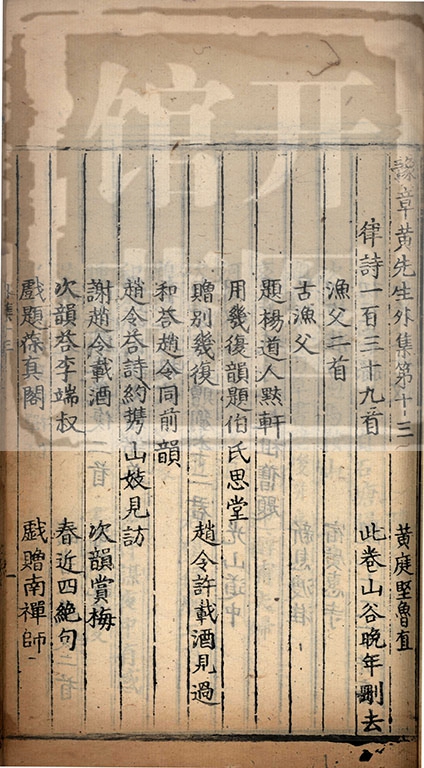 豫章黄先生外集第十三
黄庭堅魯直
律詩一百三十九首 此卷山谷晚年刪去
漁父二首
古漁父
題楊道人黙軒
用幾復韻題伯氏思堂
贈别幾復 趙令許載酒見過
和荅趙令同前韻
趙令荅詩約携山妓見訪
謝趙令載酒 次韻賞梅
次韻荅李端叔 春近四絶句
戲題葆真閣 戯贈南禪師